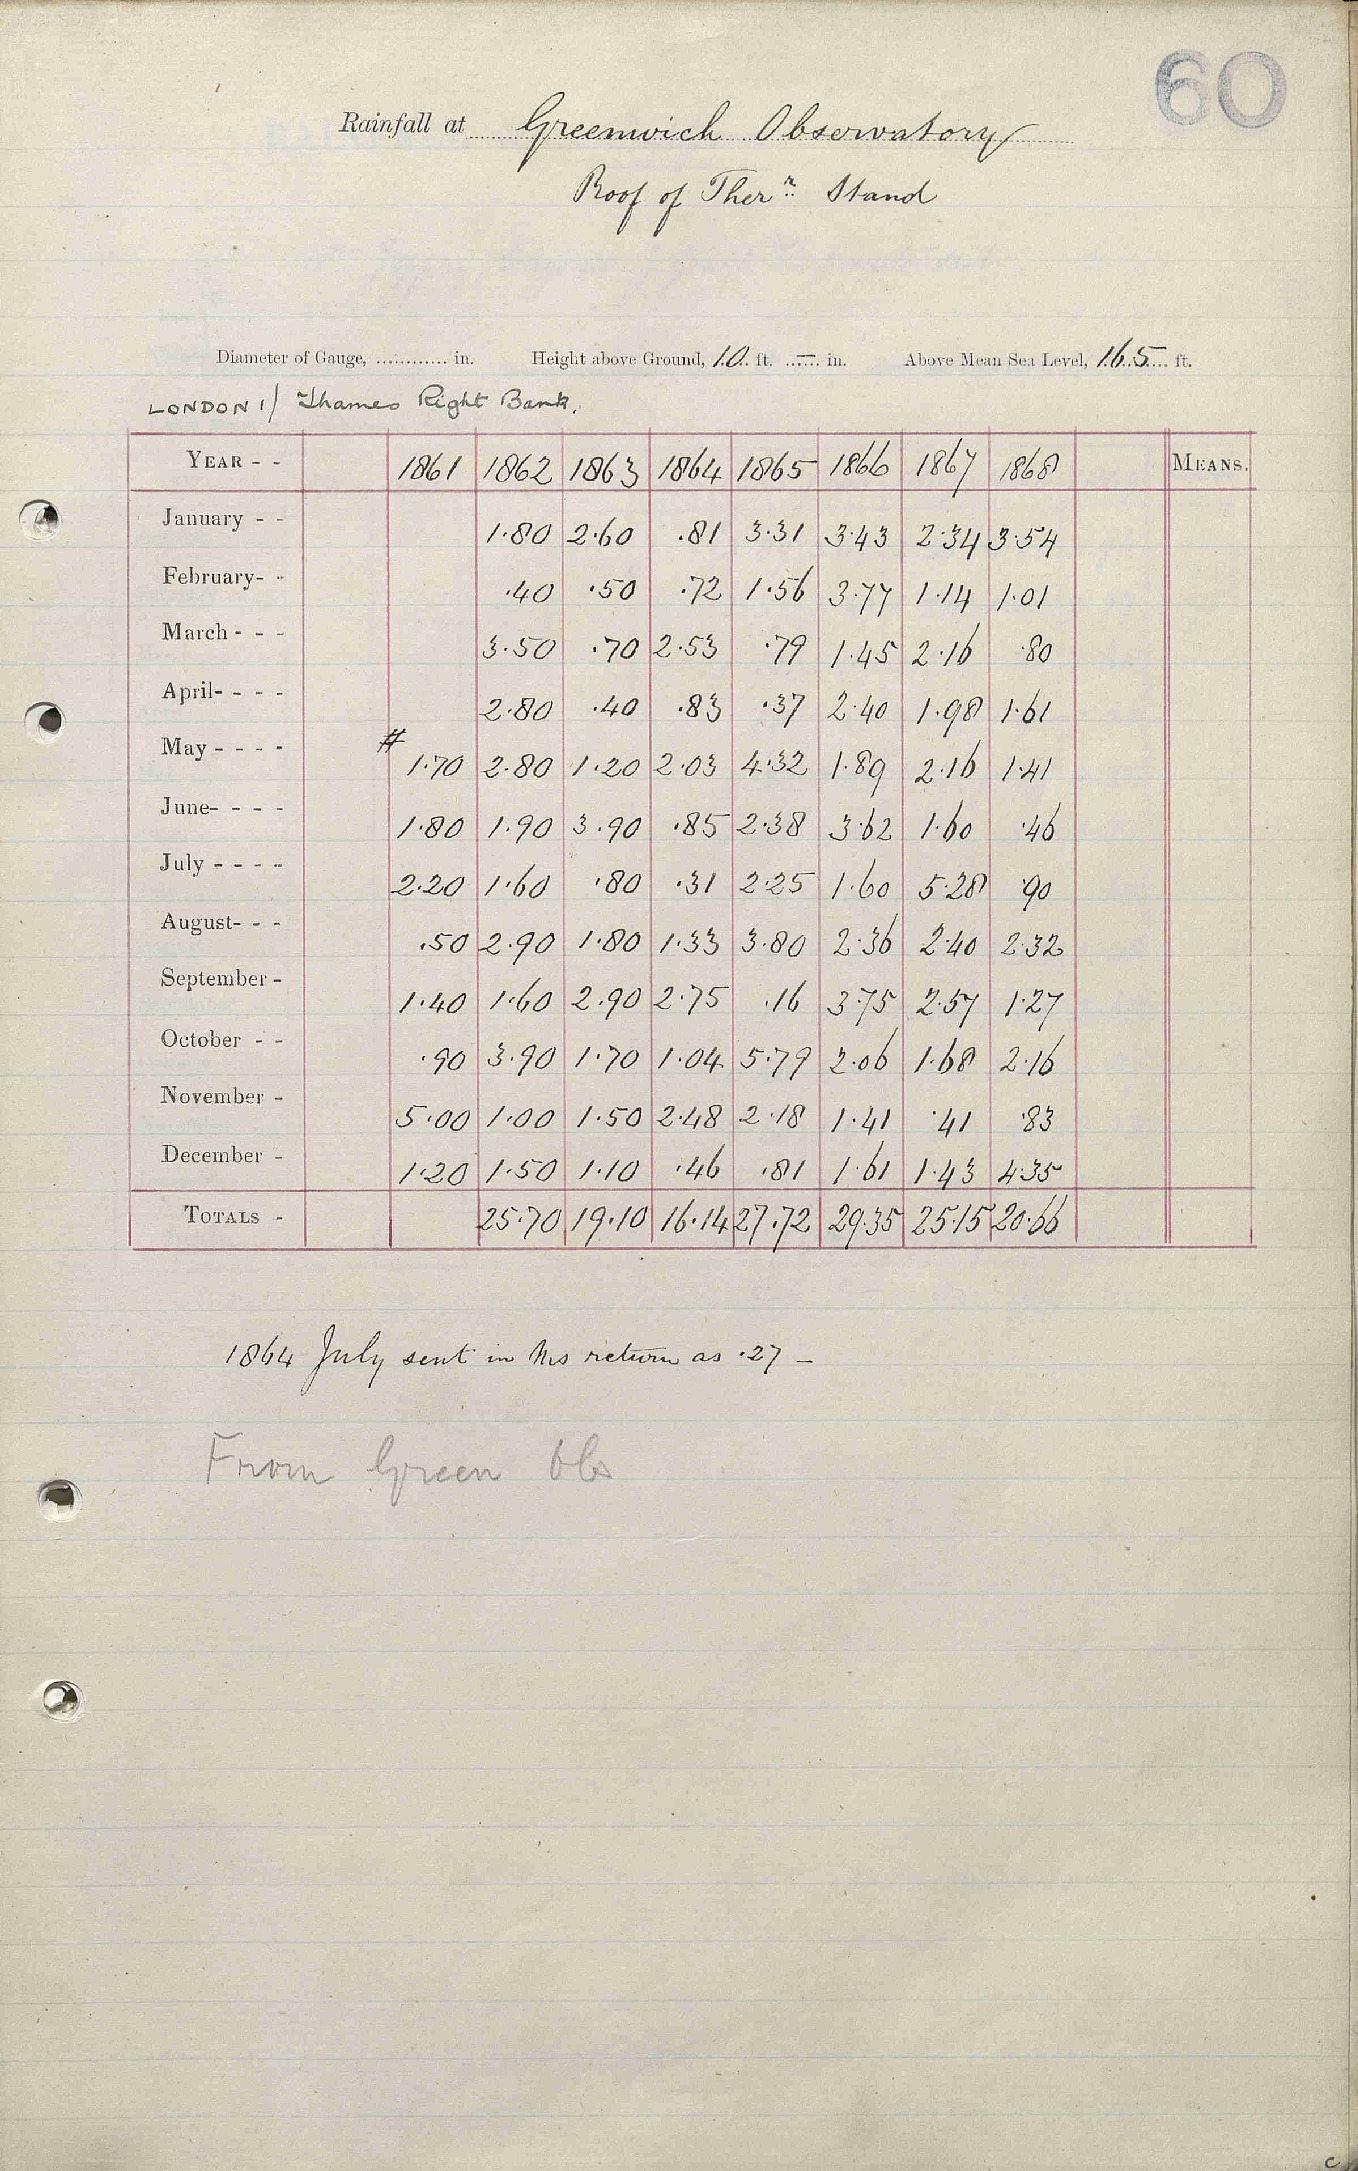 60
Rainfall at Greenwich Observatory
Roof of Ther r Stand
Diameter of Gauge, ............ in. Height above Ground, 10 ft. — in. Above Mean Sea Level, 165 ft.
LONDON 1/ Thames Right Bank.
YEAR - - 1861 1862 1863 1864 1865 1866 1867 1868 MEANS.
January - - 1.80 2.60 .81 3.31 3.43 2.34 3.54
February- - .40 .50 .72 1.56 3.77 1.14 1.01
March - - - 3.50 .70 2.53 .79 1.45 2.16 .80
April- - - - 2.80 .40 .83 .37 2.40 1.98 1.61
May - - - - # 1.70 2.80 1.20 2.03 4.32 1.89 2.16 1.41
June- - - - 1.80 1.90 3.90 .85 2.38 3.62 1.60 .46
July - - - - 2.20 1.60 .80 .31 2.25 1.60 5.28 .90
August- - - .50 2.90 1.80 1.33 3.80 2.36 2.40 2.32
September - 1.40 1.60 2.90 2.75 .16 3.75 2.57 1.27
October - - .90 3.90 1.70 1.04 5.79 2.06 1.68 2.16
November - 5.00 1.00 1.50 2.48 2.18 1.41 .41 .83
December - 1.20 1.50 1.10 .46 .81 1.61 1.43 4.35
TOTALS - 25.70 19.10 16.14 27.72 29.35 25.15 20.66
1864 July sent in his return as .27 —
From Green Obs
c